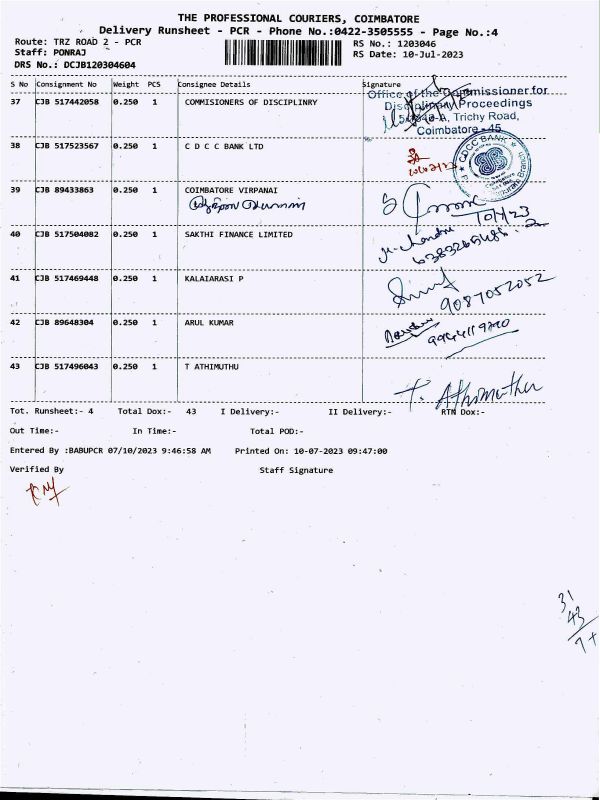 THE PROFESSIONAL COURIERS, COIMBATORE
Delivery Runsheet - PCR - Phone No.:0422-3505555 - Page No.:4
Route: TRZ ROAD 2 - PCR RS No.: 1203046
Staff: PONRAJ RS Date: 10-Jul-2023
DRS No.: DCJB120304604
S No Consignment No Weight PCS Consignee Details Signature
37 CJB 517442058 0.250 1 COMMISIONERS OF DISCIPLINRY
Office of the Commissioner for
Disciplinary Proceedings
Trichy Road,
Coimbatore - 45
38 CJB 517523567 0.250 1 C D C C BANK LTD
CDCC BANK
39 CJB 89433863 0.250 1 COIMBATORE VIRPANAI
10/7/23
40 CJB 517504082 0.250 1 SAKTHI FINANCE LIMITED
41 CJB 517469448 0.250 1 KALAIARASI P
9087052052
42 CJB 89648304 0.250 1 ARUL KUMAR
43 CJB 517496043 0.250 1 T ATHIMUTHU
T. Athimuthu
Tot. Runsheet:- 4 Total Dox:- 43 I Delivery:- II Delivery:- RTN Dox:-
Out Time:- In Time:- Total POD:-
Entered By :BABUPCR 07/10/2023 9:46:58 AM Printed On: 10-07-2023 09:47:00
Verified By Staff Signature
31
43
7+